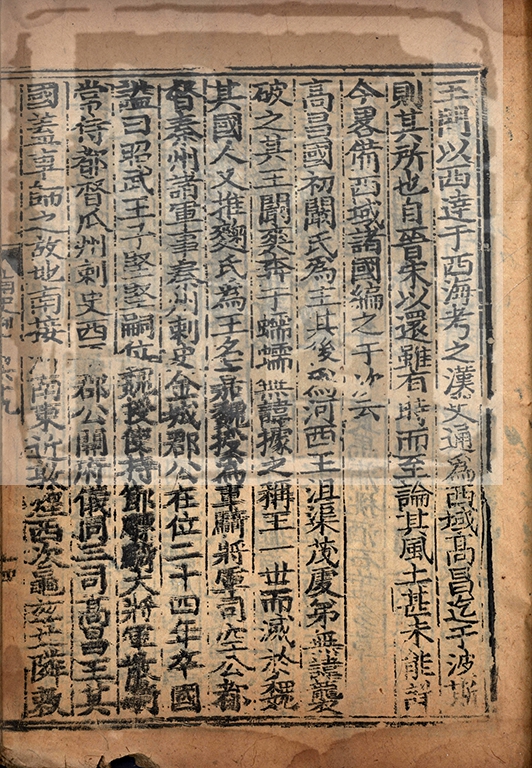 玉門以西達于西海考之漢史通爲西域高昌迄于波斯
則其所也自晉宋以還雖有時而至論其風土甚未能詳
今畧備西域諸國編之于次云
高昌國初闞氏爲主其後爲河西王沮渠茂虔弟無諱襲
破之其王闞爽奔于蠕蠕無諱據之稱王一世而滅於魏
其國人又推麴氏爲王名嘉魏授爲車騎將軍司空公都
督秦州諸軍事秦州刺史金城郡公在位二十四年卒國
諡曰昭武王子堅堅嗣位魏授使持節驃騎大將軍散騎
常侍都督瓜州刺史西郡公開府儀同三司高昌王其
國蓋車師之故地南接河南東近敦煌西次龜茲北隣敕